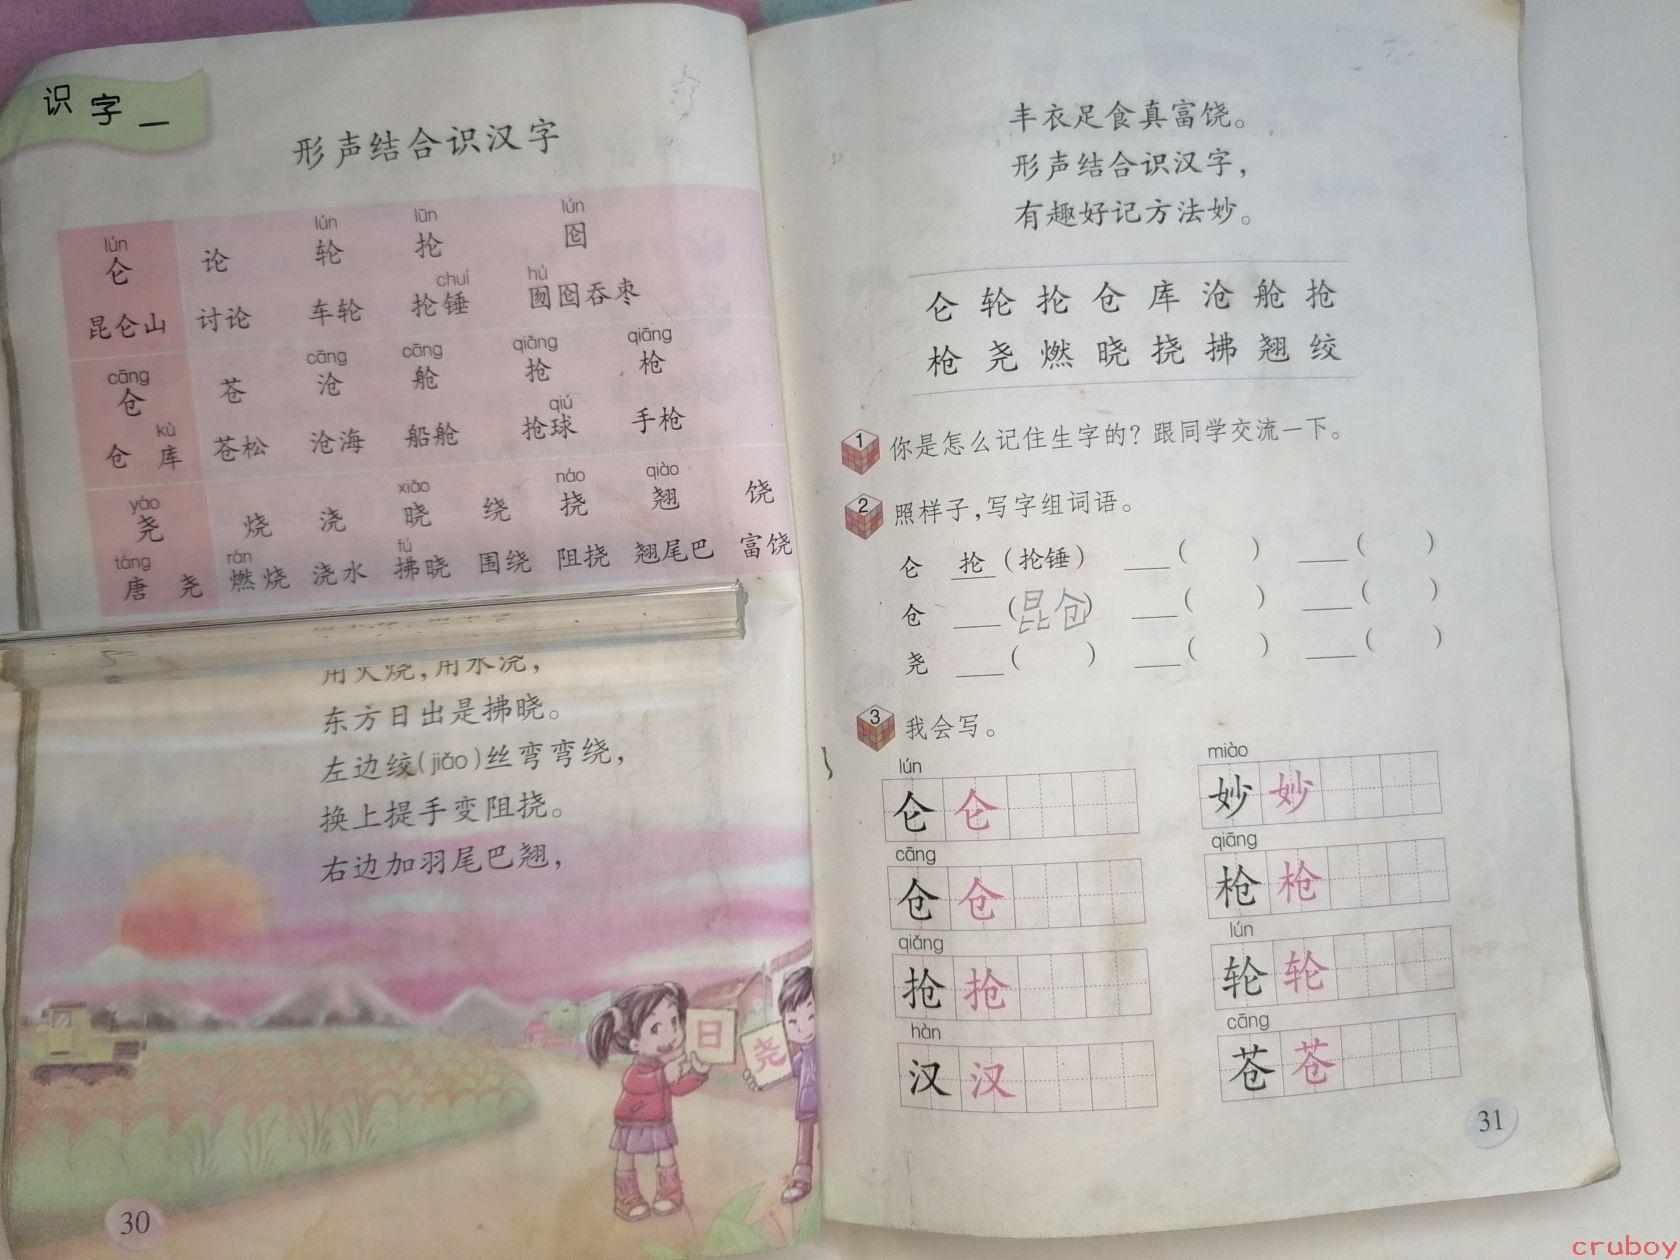 识字一
形声结合识汉字
lún lún lūn lún
仑 论 轮 抡 囵
chuí hú
昆仑山 讨论 车轮 抡锤 囫囵吞枣
cāng cāng cāng qiǎng qiāng
仓 苍 沧 舱 抢 枪
kù qiú
仓库 苍松 沧海 船舱 抢球 手枪
yáo xiǎo náo qiào
尧 烧 浇 晓 绕 挠 翘 饶
táng rán fú
唐尧 燃烧 浇水 拂晓 围绕 阻挠 翘尾巴 富饶
用火烧,用水浇,
东方日出是拂晓。
左边绞(jiǎo)丝弯弯绕,
换上提手变阻挠。
右边加羽尾巴翘,
日
尧
30
丰衣足食真富饶。
形声结合识汉字,
有趣好记方法妙。
仑 轮 抡 仓 库 沧 舱 抢
枪 尧 燃 晓 挠 拂 翘 绞
1 你是怎么记住生字的?跟同学交流一下。
2 照样子,写字组词语。
仑 抡(抡锤) ___( ) ___( )
仓 ___(昆仓) ___( ) ___( )
尧 ___( ) ___( ) ___( )
3 我会写。
lún miào
仑 仑 妙 妙
cāng qiāng
仓 仓 枪 枪
qiǎng lún
抢 抢 轮 轮
hàn cāng
汉 汉 苍 苍
31
cruboy